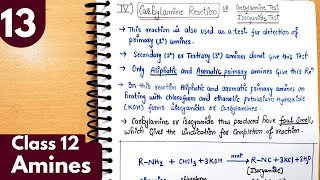 13
Class 12
Amines
IV) Carbylamine Reaction or Carbylamine Test
Isocyanide Test
→ This reaction is also used as a test for detection of
primary (1°) amines.
→ Secondary (2°) or Tertiary (3°) amines donot give this Test
→ Only Aliphatic and Aromatic primary amines give this Rxn
→ In this reaction Aliphatic and Aromatic primary amines on
heating with chloroform and ethanolic potassium Hydroxide
(KOH) forms isocyanides or Carbylamines.
→ Carbylamine or isocyanide thus produced have foul smell,
which Gives the indication for Completion of reaction.
R-NH₂ + CHCl₃ + 3KOH heat→ R-NC + 3KCl + 3H₂O
(Isocyanide)